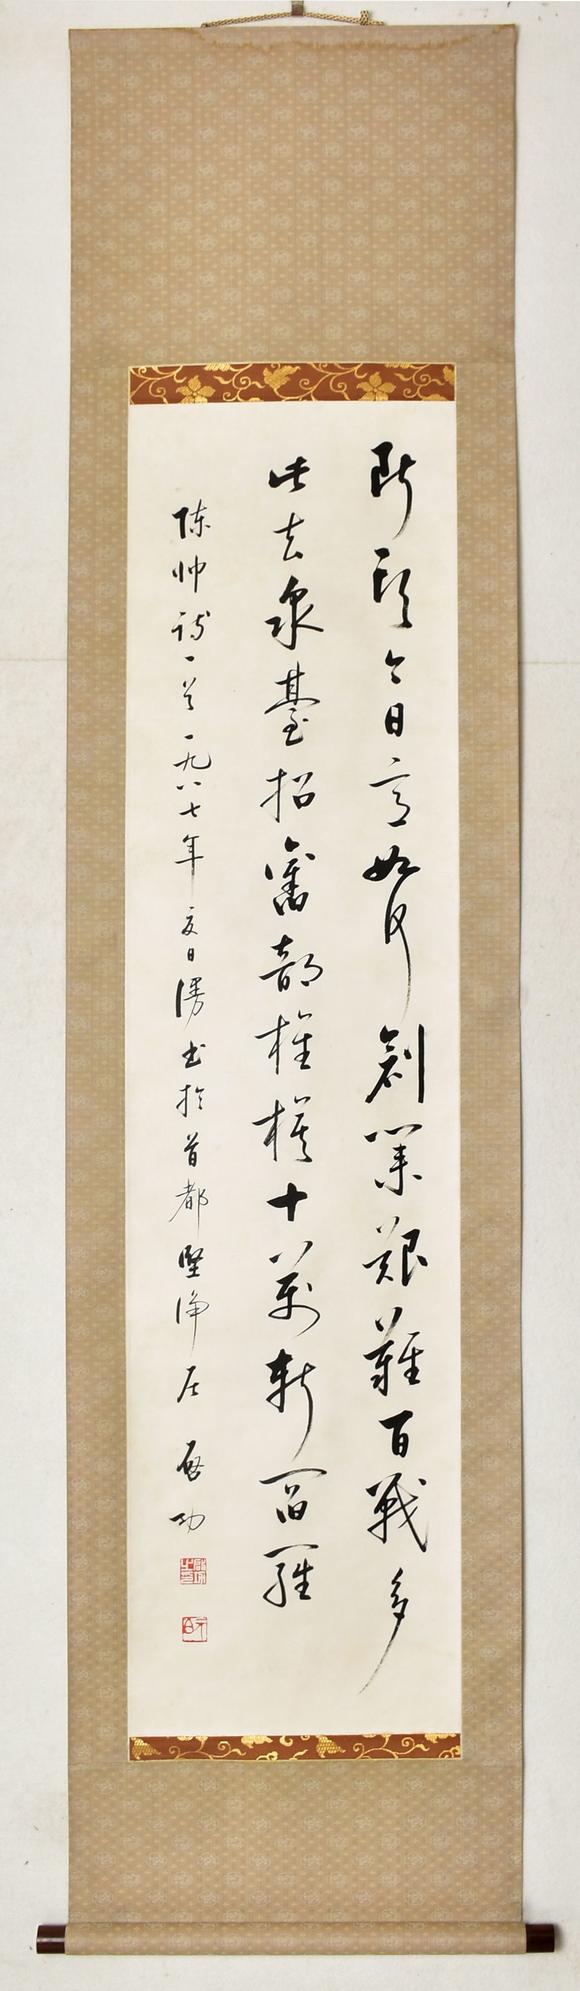 断头今日意如何创业艰难百战多
此去泉臺招舊部旌旗十萬斬閻羅
陈帅诗一首一九八七年夏日漫书於首都坚净居 启功